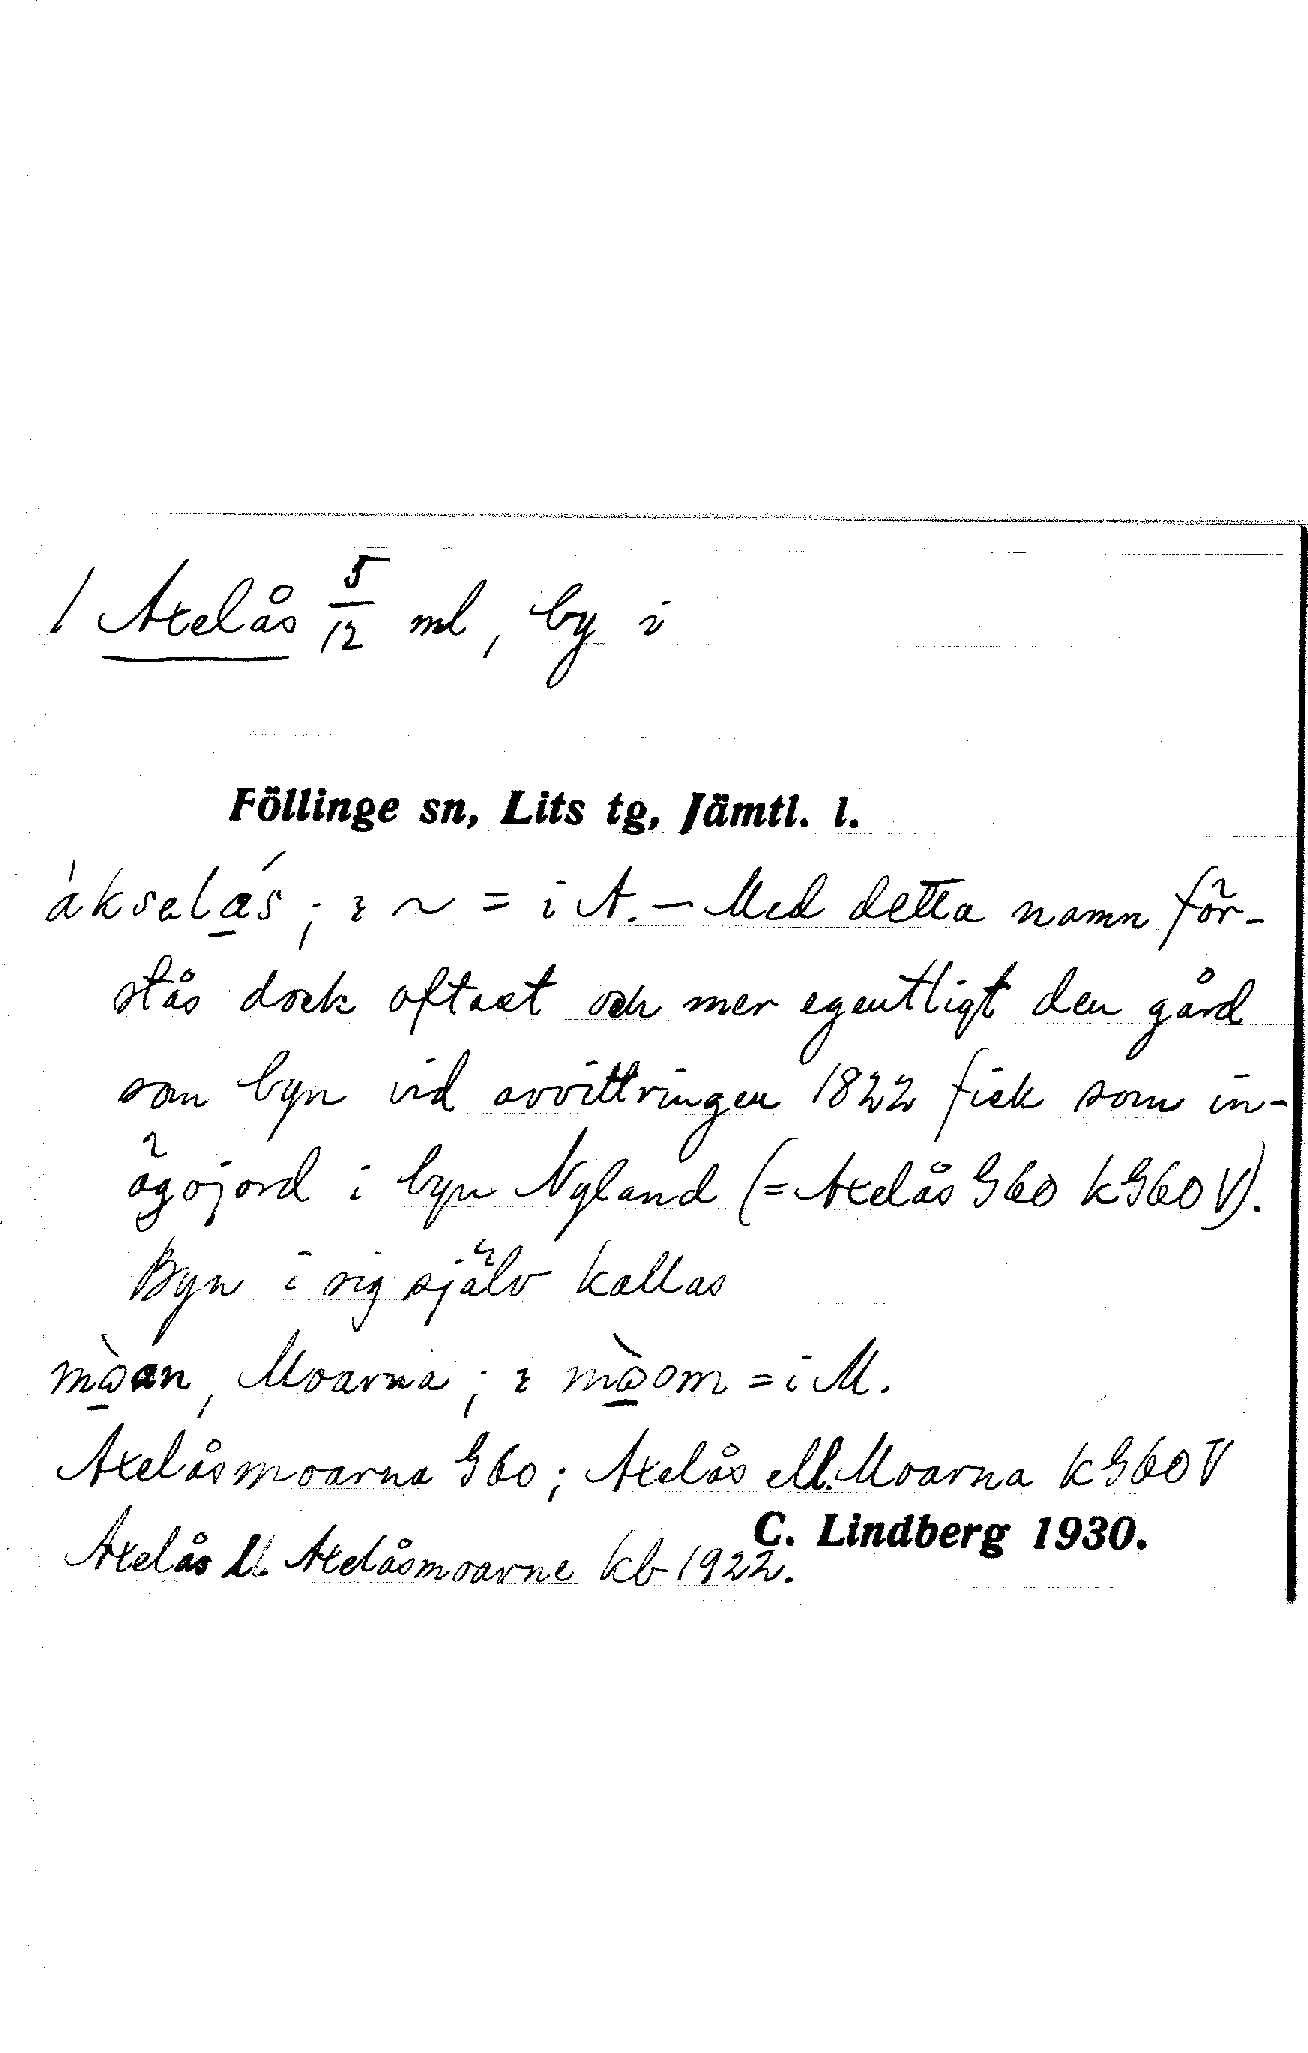 / Axelås 5/12 ml, by i
Föllinge sn, Lits tg, Jämtl. l.
àksalás; ı ~ = i A. — Med detta namn för-
stås dock oftast och mer egentligt den gård
som byn vid avvittringen 1822 fick som in-
ägojord i byn Nyland (= Axelås G60 kG60V).
Byn i sig själv kallas
mòan, Moarna; ı mòom = i M.
Axelåsmoarna G60; Axelås ell. Moarna kG60V
C. Lindberg 1930.
Axelås ll. Axelåsmoarne kb 1922.